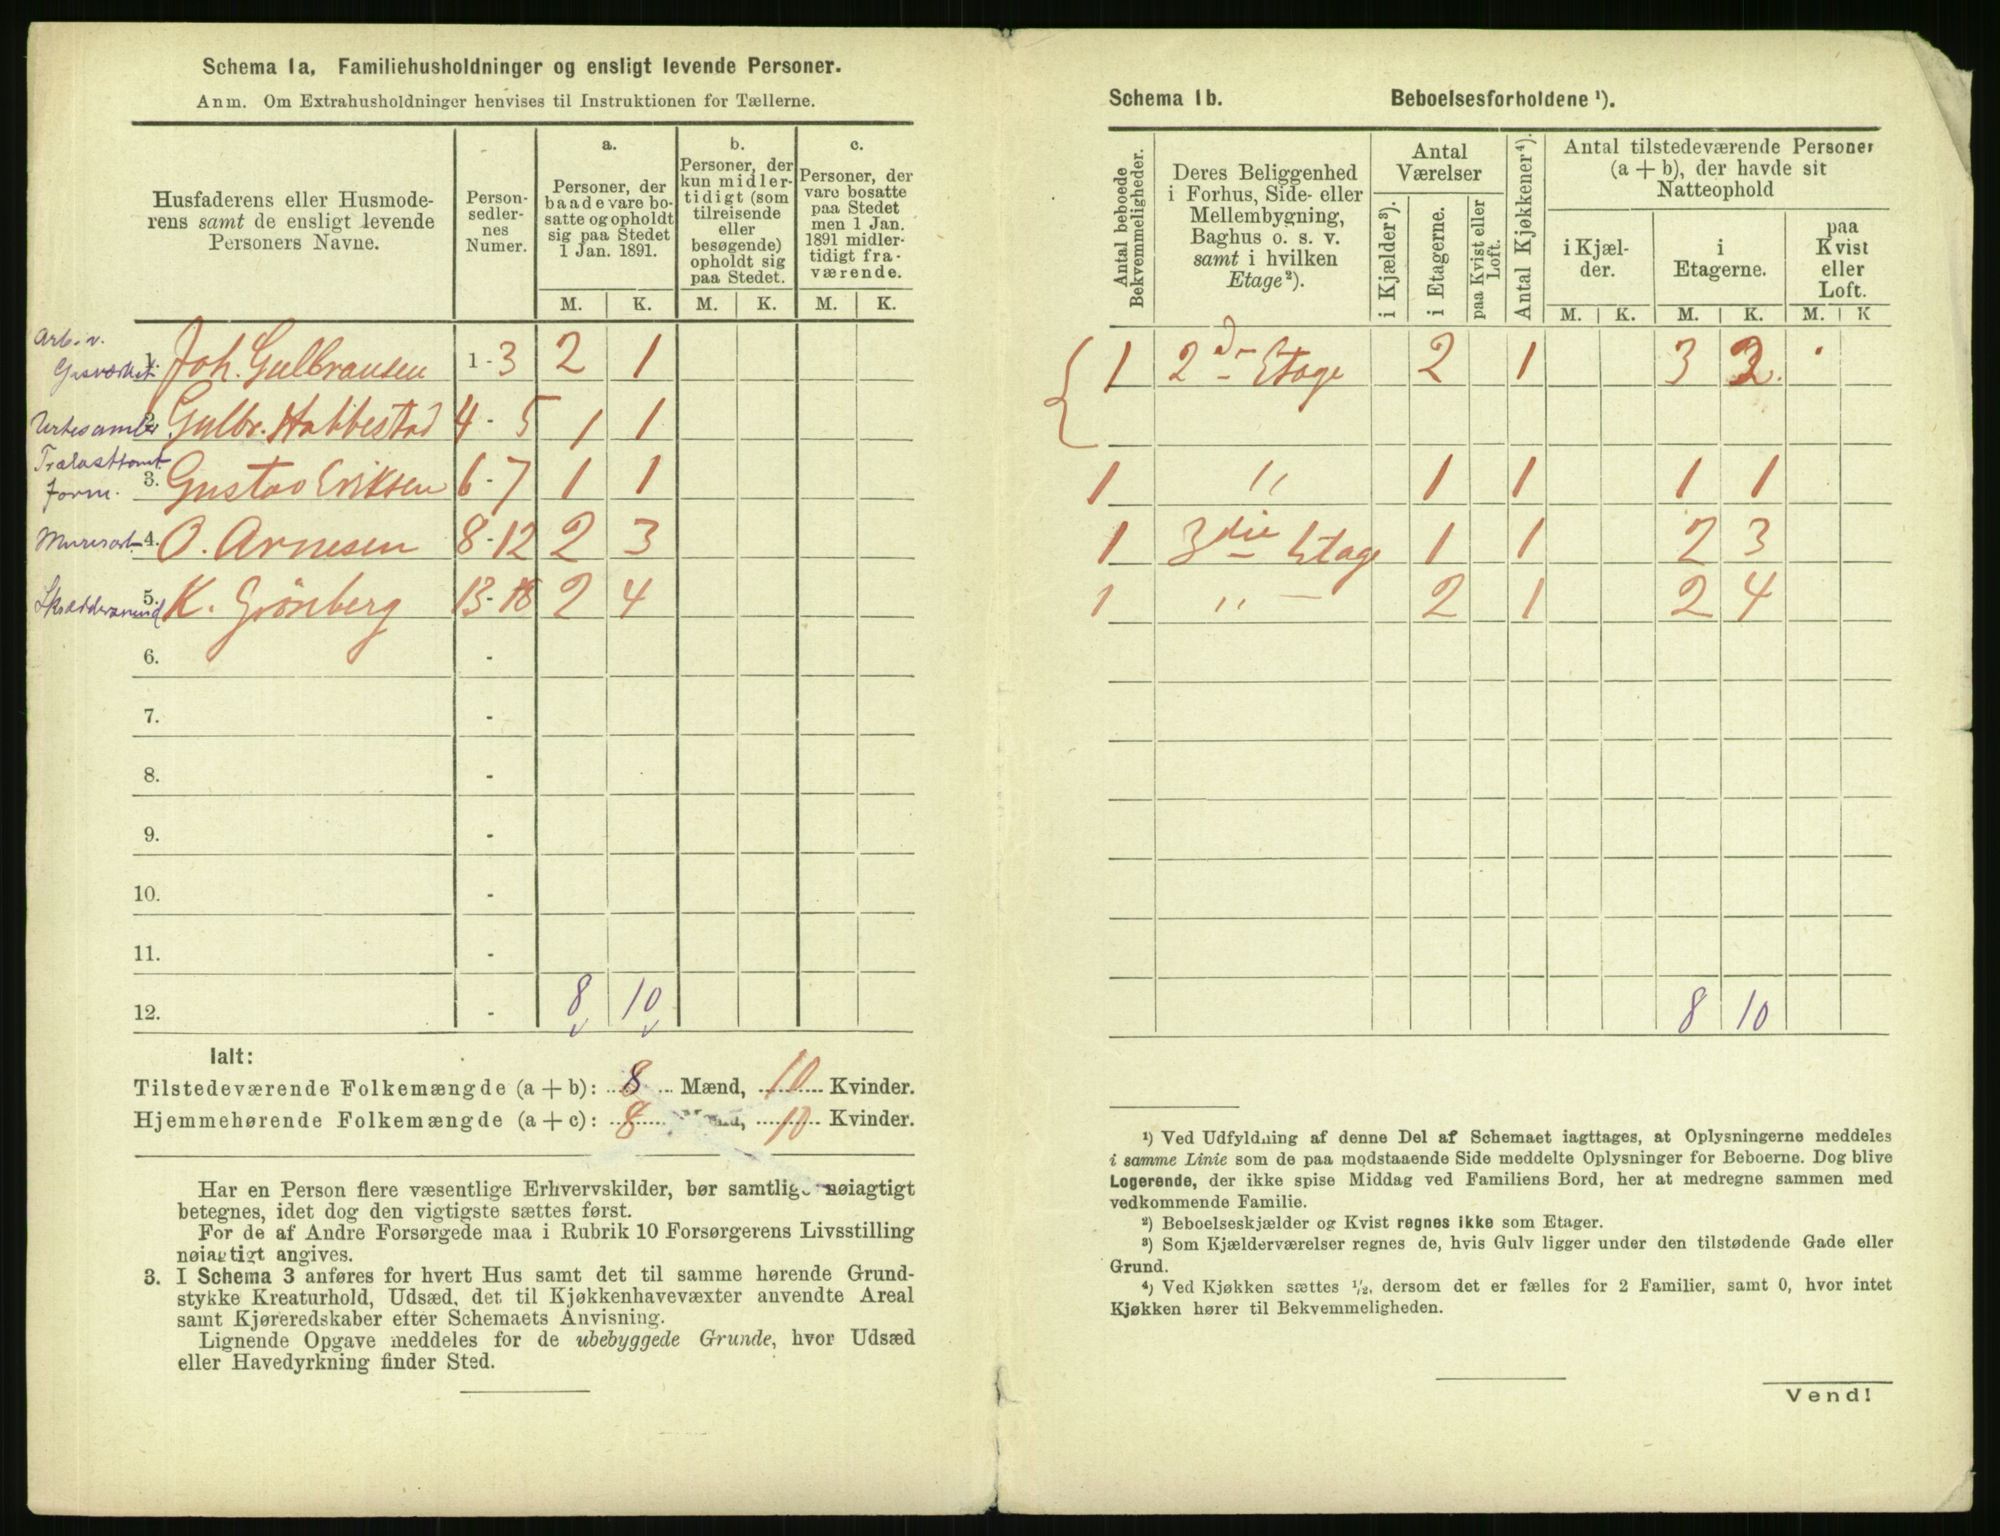 Schema 1a. Familiehusholdninger og ensligt levende Personer.
Anm. Om Extrahusholdninger henvises til Instruktionen for Tællerne.
Husfaderens eller Husmode-
rens samt de ensligt levende
Personers Navne.
Person-
sedler-
nes
Numer.
a.
Personer, der
baade vare bo-
satte og opholdt
sig paa Stedet
1 Jan. 1891.
b.
Personer, der
kun midler-
tidigt (som
tilreisende
eller
besøgende)
opholdt sig
paa Stedet.
c.
Personer, der
vare bosatte
paa Stedet
men 1 Jan.
1891 midler-
tidigt fra-
værende.
M. K. M. K. M. K.
Arb. v.
Gasværket 1. Joh. Gulbrausen 1-3 2 1
2. Gulbr. Habbestad 4-5 1 1
Trælasttomt
form. 3. Gustav Eriksen 6-7 1 1
Murerarb. 4. O. Arnesen 8-12 2 3
Skræddersvend 5. K. Grönberg 13-18 2 4
6. -
7. -
8. -
9. -
10. -
11. -
12. - 8 10
Ialt:
Tilstedeværende Folkemængde (a + b): 8 Mænd, 10 Kvinder.
Hjemmehørende Folkemængde (a + c): 8 Mænd, 10 Kvinder.
Har en Person flere væsentlige Erhvervskilder, bør samtlige nøiagtigt
betegnes, idet dog den vigtigste sættes først.
For de af Andre Forsørgede maa i Rubrik 10 Forsørgerens Livsstilling
nøiagtigt angives.
3. I Schema 3 anføres for hvert Hus samt det til samme hørende Grund-
stykke Kreaturhold, Udsæd, det til Kjøkkenhavevæxter anvendte Areal
samt Kjøreredskaber efter Schemaets Anvisning.
Lignende Opgave meddeles for de ubebyggede Grunde, hvor Udsæd
eller Havedyrkning finder Sted.
Schema 1b. Beboelsesforholdene ¹).
Antal beboede
Bekvemmeligheder.
Deres Beliggenhed
i Forhus, Side- eller
Mellembygning,
Baghus o. s. v.
samt i hvilken
Etage²).
Antal
Værelser
i Kjælder³).
i Etagerne.
paa Kvist eller
Loft.
Antal Kjøkkener⁴).
Antal tilstedeværende Personer
(a + b), der havde sit
Natteophold
i Kjæl-
der.
i
Etagerne.
paa
Kvist
eller
Loft.
M. K. M. K. M. K
1 2d Etage 2 1 3 2
1 " 1 1 1 1
1 3die Etage 1 1 2 3
1 " - 2 1 2 4
8 10
¹) Ved Udfyldning af denne Del af Schemaet iagttages, at Oplysningerne meddeles
i samme Linie som de paa modstaaende Side meddelte Oplysninger for Beboerne. Dog blive
Logerende, der ikke spise Middag ved Familiens Bord, her at medregne sammen med
vedkommende Familie.
²) Beboelseskjælder og Kvist regnes ikke som Etager.
³) Som Kjælderværelser regnes de, hvis Gulv ligger under den tilstødende Gade eller
Grund.
⁴) Ved Kjøkken sættes ½, dersom det er fælles for 2 Familier, samt 0, hvor intet
Kjøkken hører til Bekvemmeligheden.
Vend!